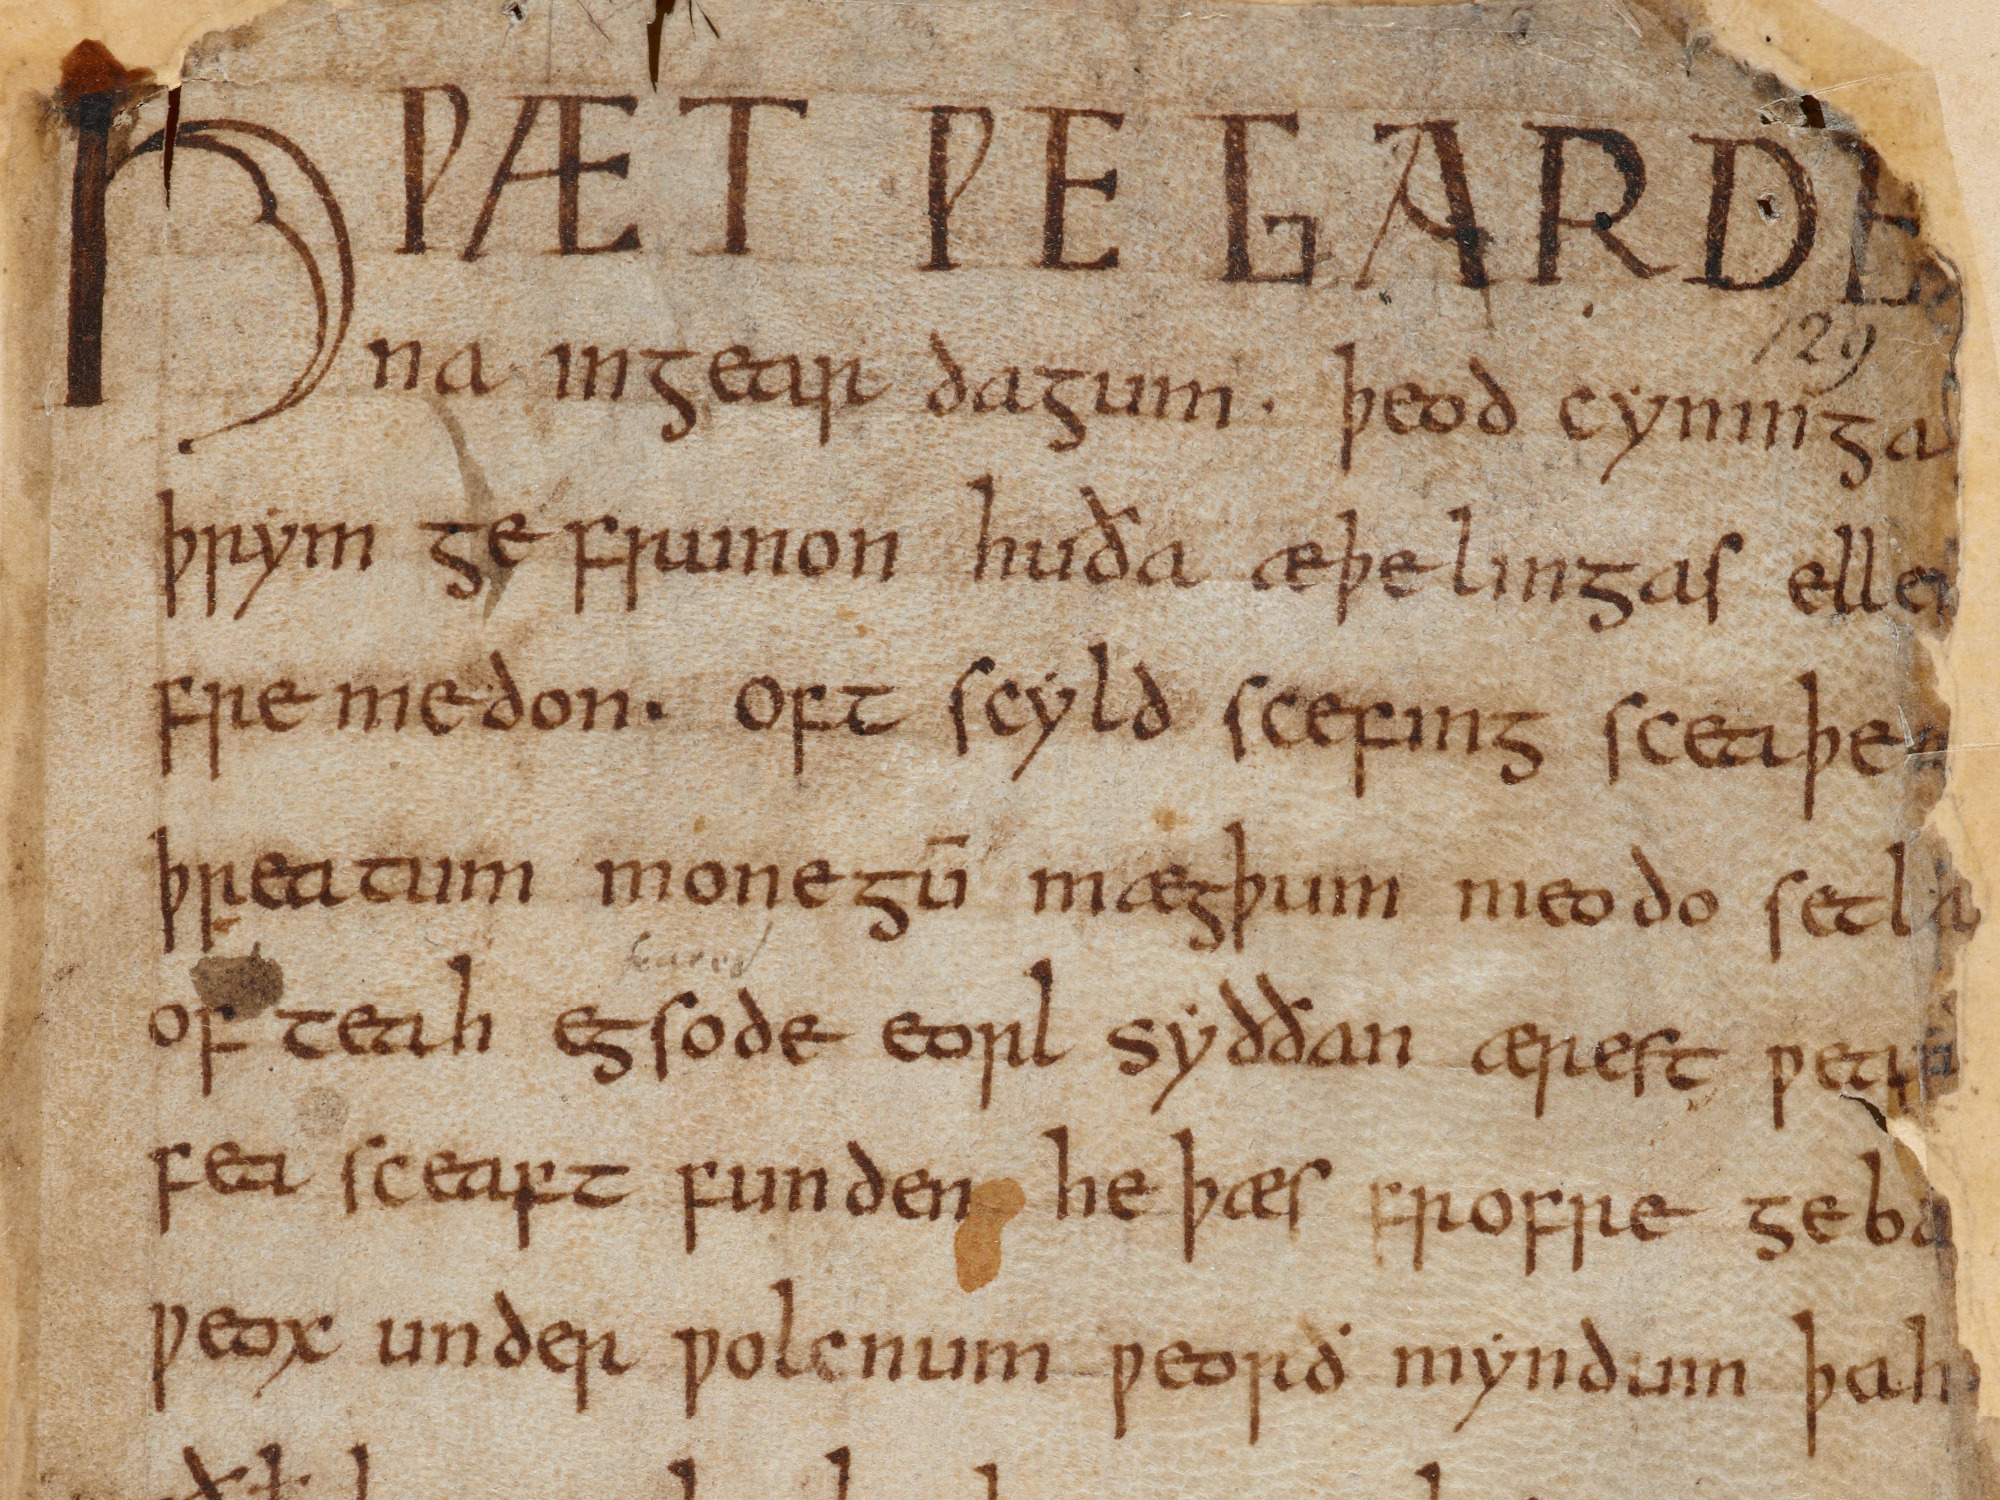 HǷÆT ǷE GARDE
na ingear dagum. þeod cyninga
þrym ge frunon huða æþelingas elle
fremedon. oft scyld scefing sceaþe
þreatum monegū mægþum meodo setla
of teah egsode eorl syððan ærest ƿear
fea sceaft funden he þæs frofre geba
ƿeox under ƿolcnum ƿeorð myndum þah
129
feared